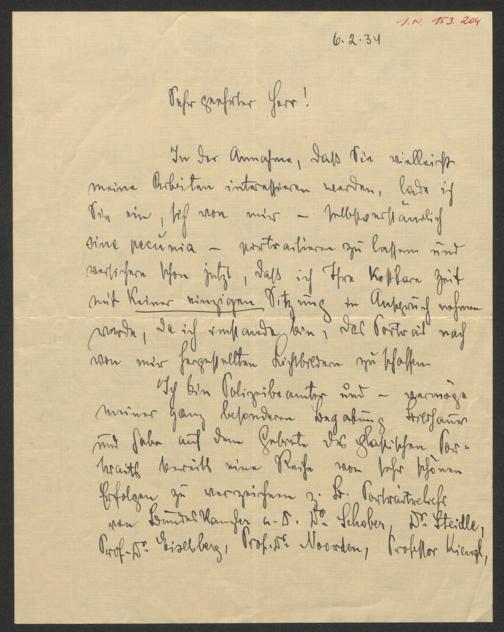 J.N. 153.204
6.2.34
Sehr geehrter Herr!
In der Annahme, daß Sie vielleicht
meine Arbeiten interessieren werden, lade ich
Sie ein, sich von mir – selbstverständlich
sine pecunia – portraitieren zu lassen und
versichere schon jetzt, daß ich Ihre kostbare Zeit
mit keiner einzigen Sitzung in Anspruch nehmen
werde, da ich imstande bin, das Portrait nach
von mir hergestellten Lichtbildern zu schaffen.
Ich bin Polizeibeamter und – vermöge
meiner ganz besonderen Begabung Bildhauer
und habe auf dem Gebiete des plastischen Por-
traits bereits eine Reihe von sehr schönen
Erfolgen zu verzeichnen z. B. Portraitreliefs
von Bundeskanzler a. D. Dr. Schober, Dr. Steidle,
Prof. Dr. Eiselsberg, Prof. Dr. Noorden, Professor Kienzl,